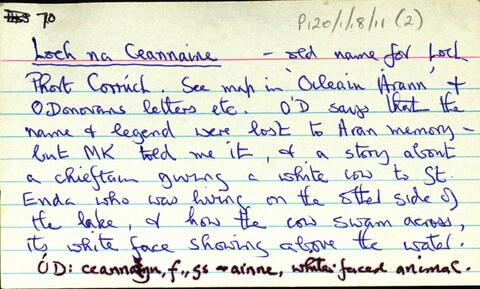 70 P120/1/8/11 (2)
Loch na Ceannaine - old name for Loch
Phort Corrúch. See map in 'Oileáin Árann' +
O'Donovans letters etc. O'D says that the
name & legend were lost to Aran memory -
but MK told me it, & a story about
a chieftain giving a white cow to St.
Enda who was living on the other side of
the lake, & how the cow swam across,
its white face showing above the water.
ÓD: f., gs ~ ainne, white-faced animal.